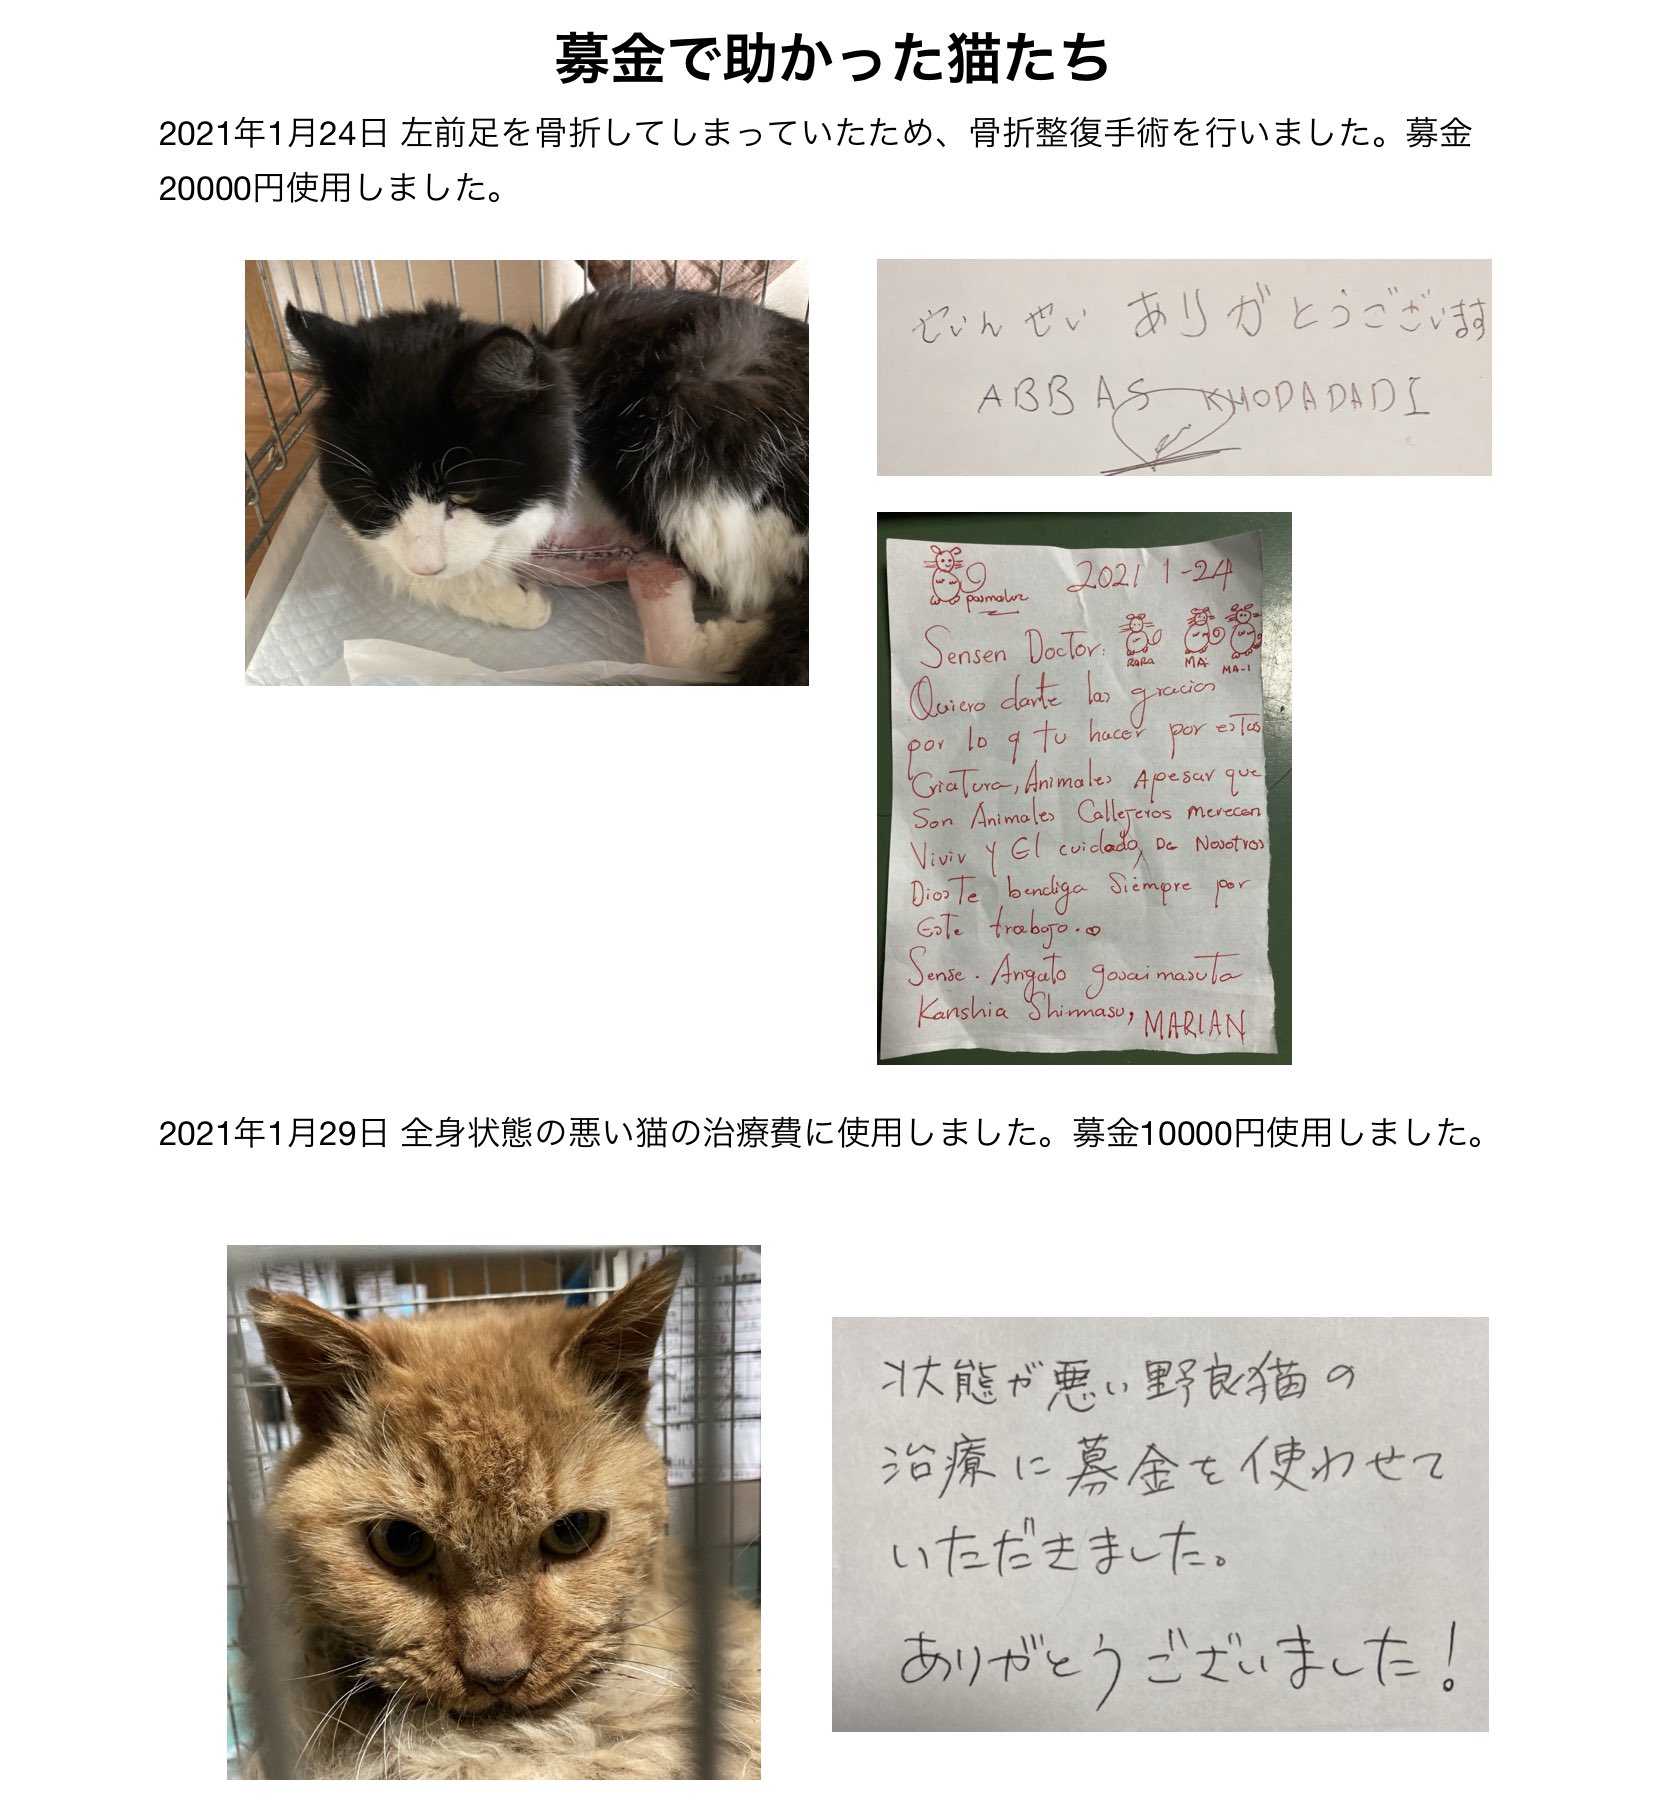 募金で助かった猫たち
2021年1月24日 左前足を骨折してしまっていたため、骨折整復手術を行いました。募金
20000円使用しました。
せいんせい ありがとうございます
ABBAS KHODADADI
2021 1-24
Sensen Doctor:
RaRa MA- MA-1
Quiero darte las gracias
por lo q tu hacer por estas
Criatura, Animales Apesar que
Son Animales Callejeros merecen
Vivir y El cuidado, De Nosotros
Dios Te bendiga Siempre por
Este trabajo.
Sense. Arigato gosaimasuta
Kanshia Shimasu, MARIAN
2021年1月29日 全身状態の悪い猫の治療費に使用しました。募金10000円使用しました。
状態が悪い野良猫の
治療に募金を使わせて
いただきました。
ありがとうございました!